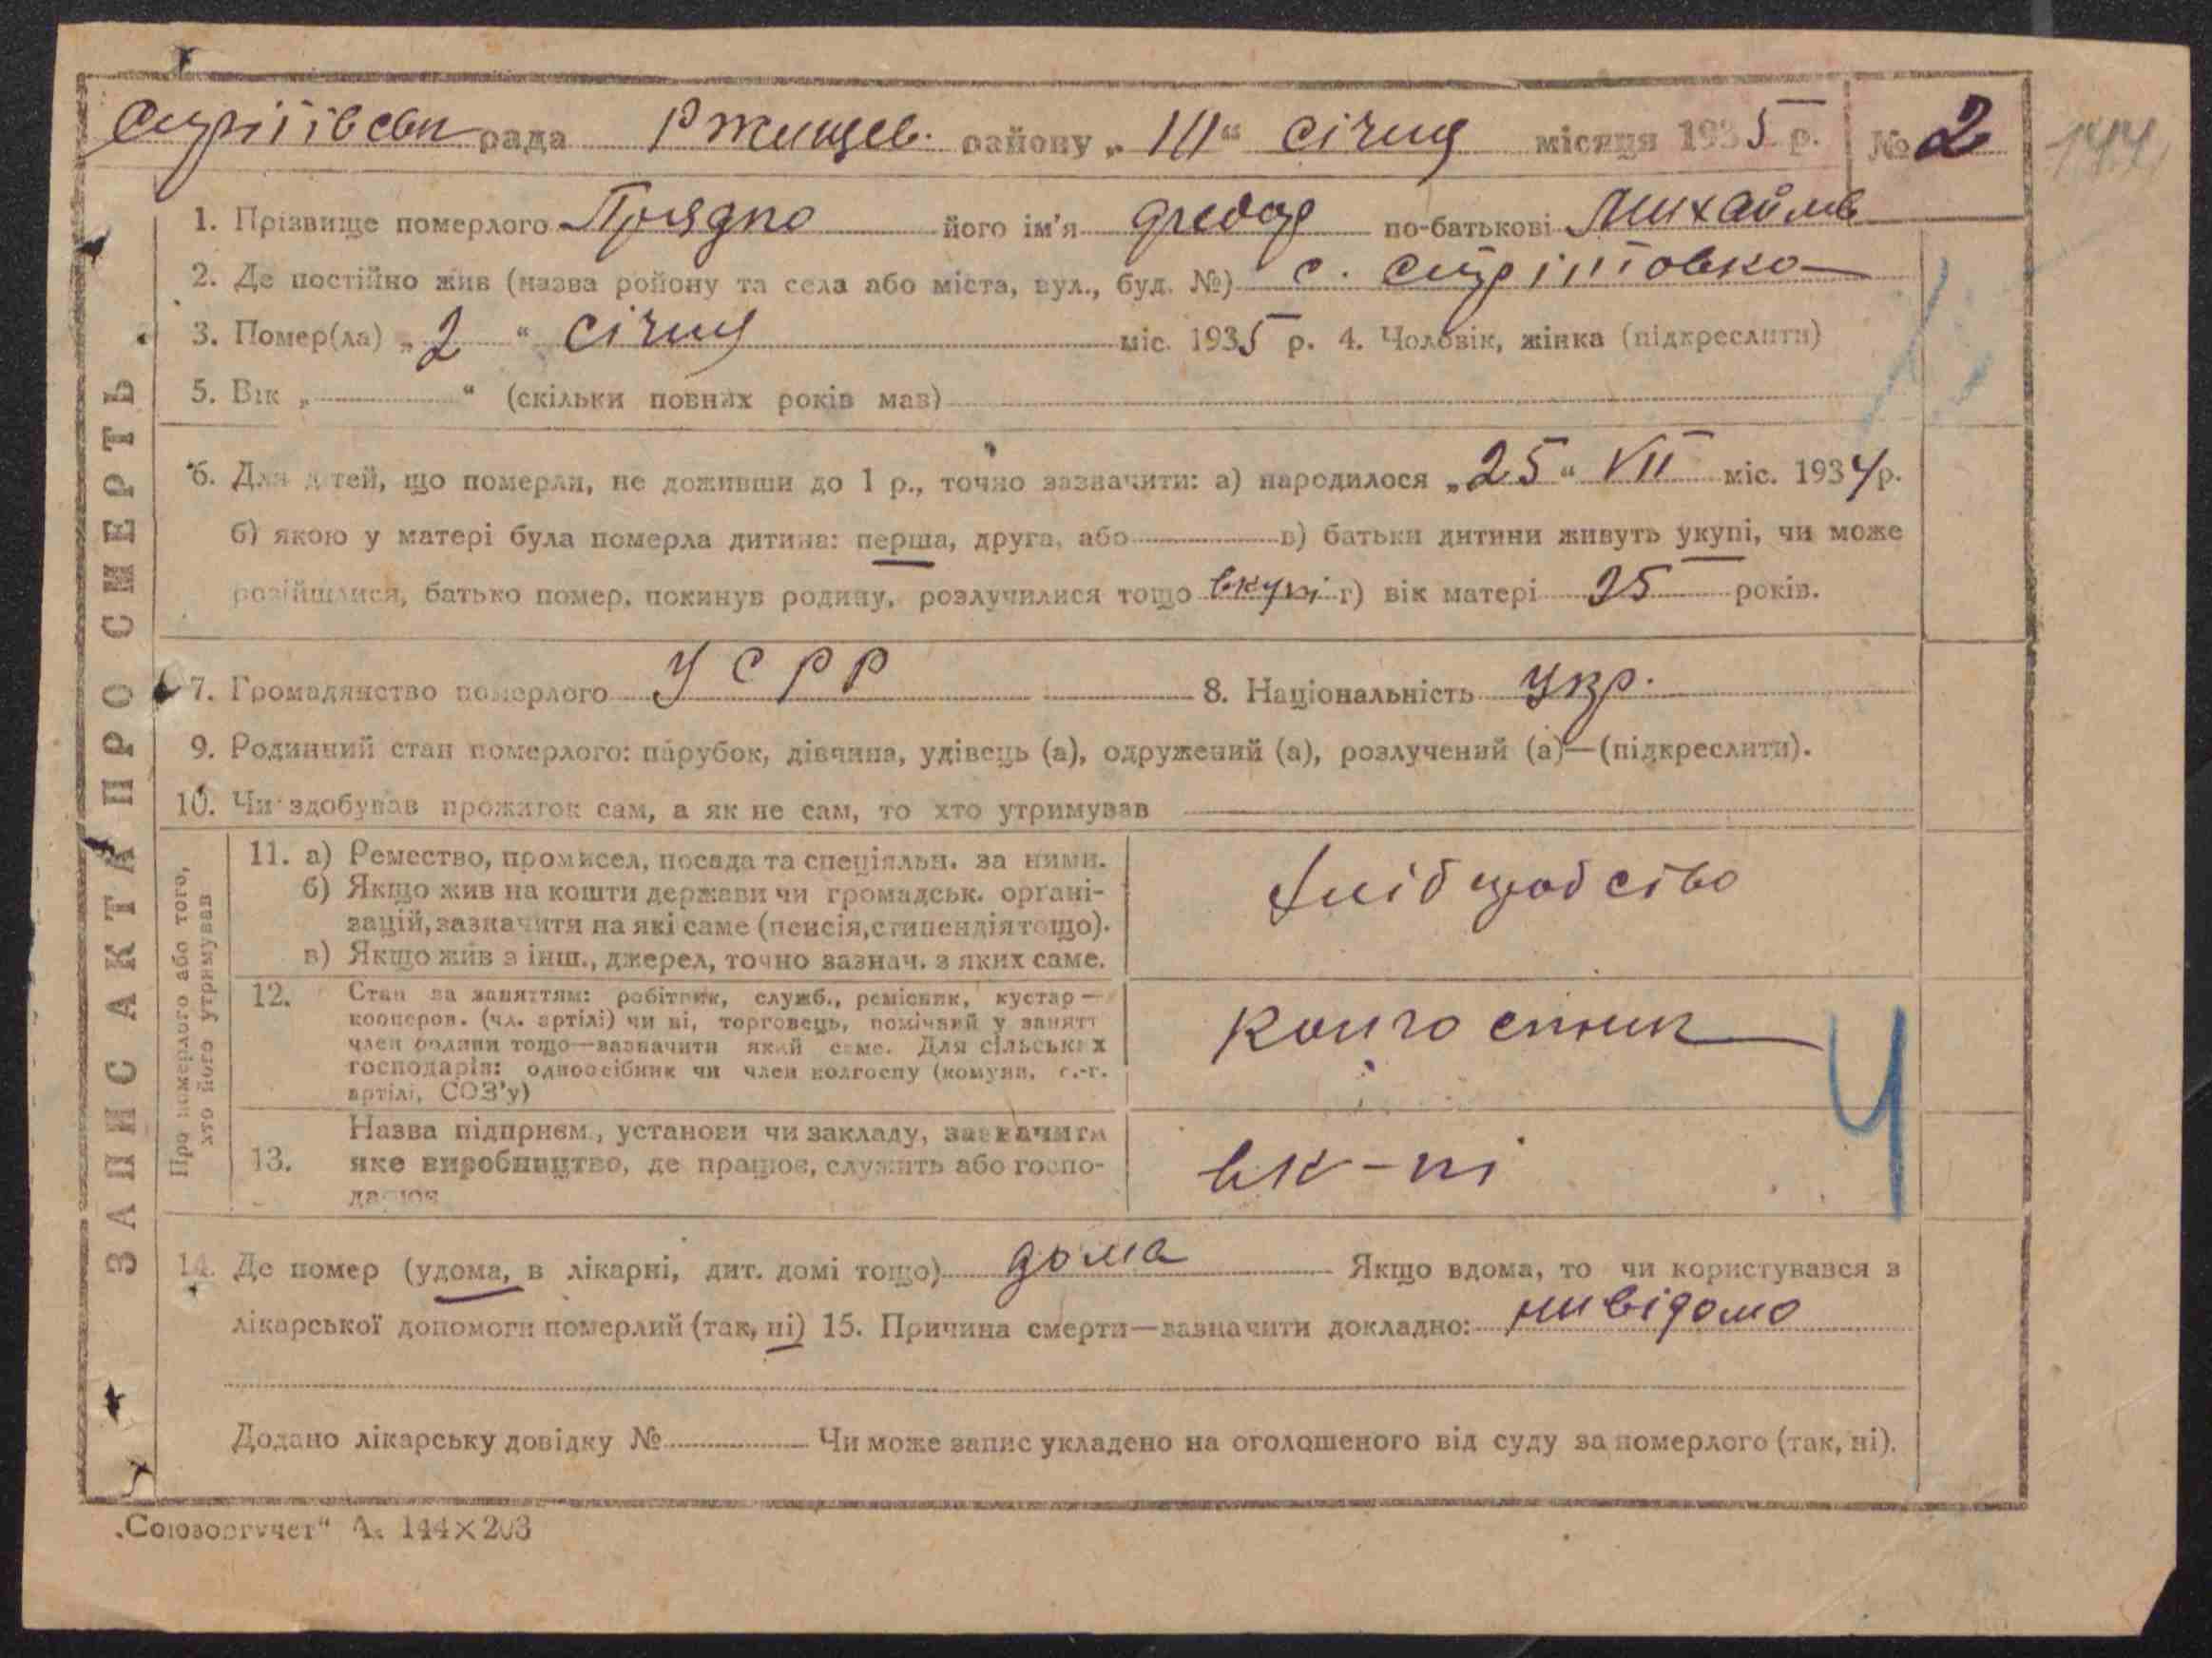 рада Ржищев. району „ III “ січня місяця 1935 р. № 2
144
1. Прізвище померлого Прядко його ім'я Федор по-батькові Михайлов
2. Де постійно жив (назва ройону та села або міста, вул., буд. №) с. Стрітовка
3. Помер(ла) „ 2 “ січня міс. 1935 р. 4. Чоловік, жінка (підкреслити)
5. Вік „ “ (скільки повних років мав)
6. Для дітей, що померли, не доживши до 1 р., точно зазначити: а) народилося „ 25 “ VII міс. 1934 р.
б) якою у матері була померла дитина: перша, друга, або в) батьки дитини живуть укупі, чи може
розійшлися, батько помер, покинув родину, розлучилися тощо вкупі г) вік матері 25 років.
7. Громадянство померлого УСРР 8. Національність Укр.
9. Родинний стан померлого: парубок, дівчина, удівець (а), одружений (а), розлучений (а)—(підкреслити).
10. Чи здобував прожиток сам, а як не сам, то хто утримував
ЗАПИС АКТА ПРО СМЕРТЬ
Про померлого або того,
хто його утримував
11. а) Ремество, промисел, посада та спеціяльн. за ними.
б) Якщо жив на кошти держави чи громадськ. органі-
зацій, зазначити на які саме (пенсія, стипендія тощо).
в) Якщо жив з інш., джерел, точно зазнач. з яких саме.
хліборобство
12. Стан за заняттям: робітник, служб., ремісник, кустар—
кооперов. (чл. артілі) чи ні, торговець, помічний у занятт
член родини тощо—зазначити який саме. Для сільських
господарів: одноосібник чи член колгоспу (комуни, с.-г.
артілі, СОЗ'у)
колгоспник
Ч
13. Назва підприєм., установи чи закладу, зазначити
яке виробництво, де працює, служить або госпо-
дарює
в к-пі
14. Де помер (удома, в лікарні, дит. домі тощо) дома Якщо вдома, то чи користувався з
лікарської допомоги померлий (так, ні) 15. Причина смерти—зазначити докладно: нивідомо
Додано лікарську довідку № Чи може запис укладено на оголошеного від суду за померлого (так, ні).
„Союзоргучет“ А. 144×203